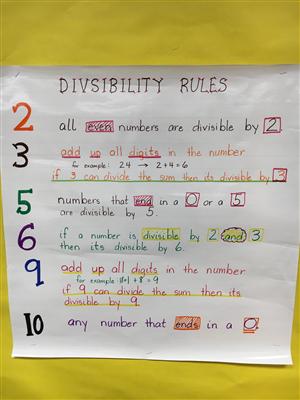 DIVSIBILITY RULES
2 all even numbers are divisible by 2.
3 add up all digits in the number
for example: 24 → 2+4=6
if 3 can divide the sum then its divisible by 3
5 numbers that end in a 0 or a 5
are divisible by 5.
6 if a number is divisible by 2 and 3
then its divisible by 6.
9 add up all digits in the number
for example:
+8=9
if 9 can divide the sum then its
divisible by 9.
10 any number that ends in a 0.